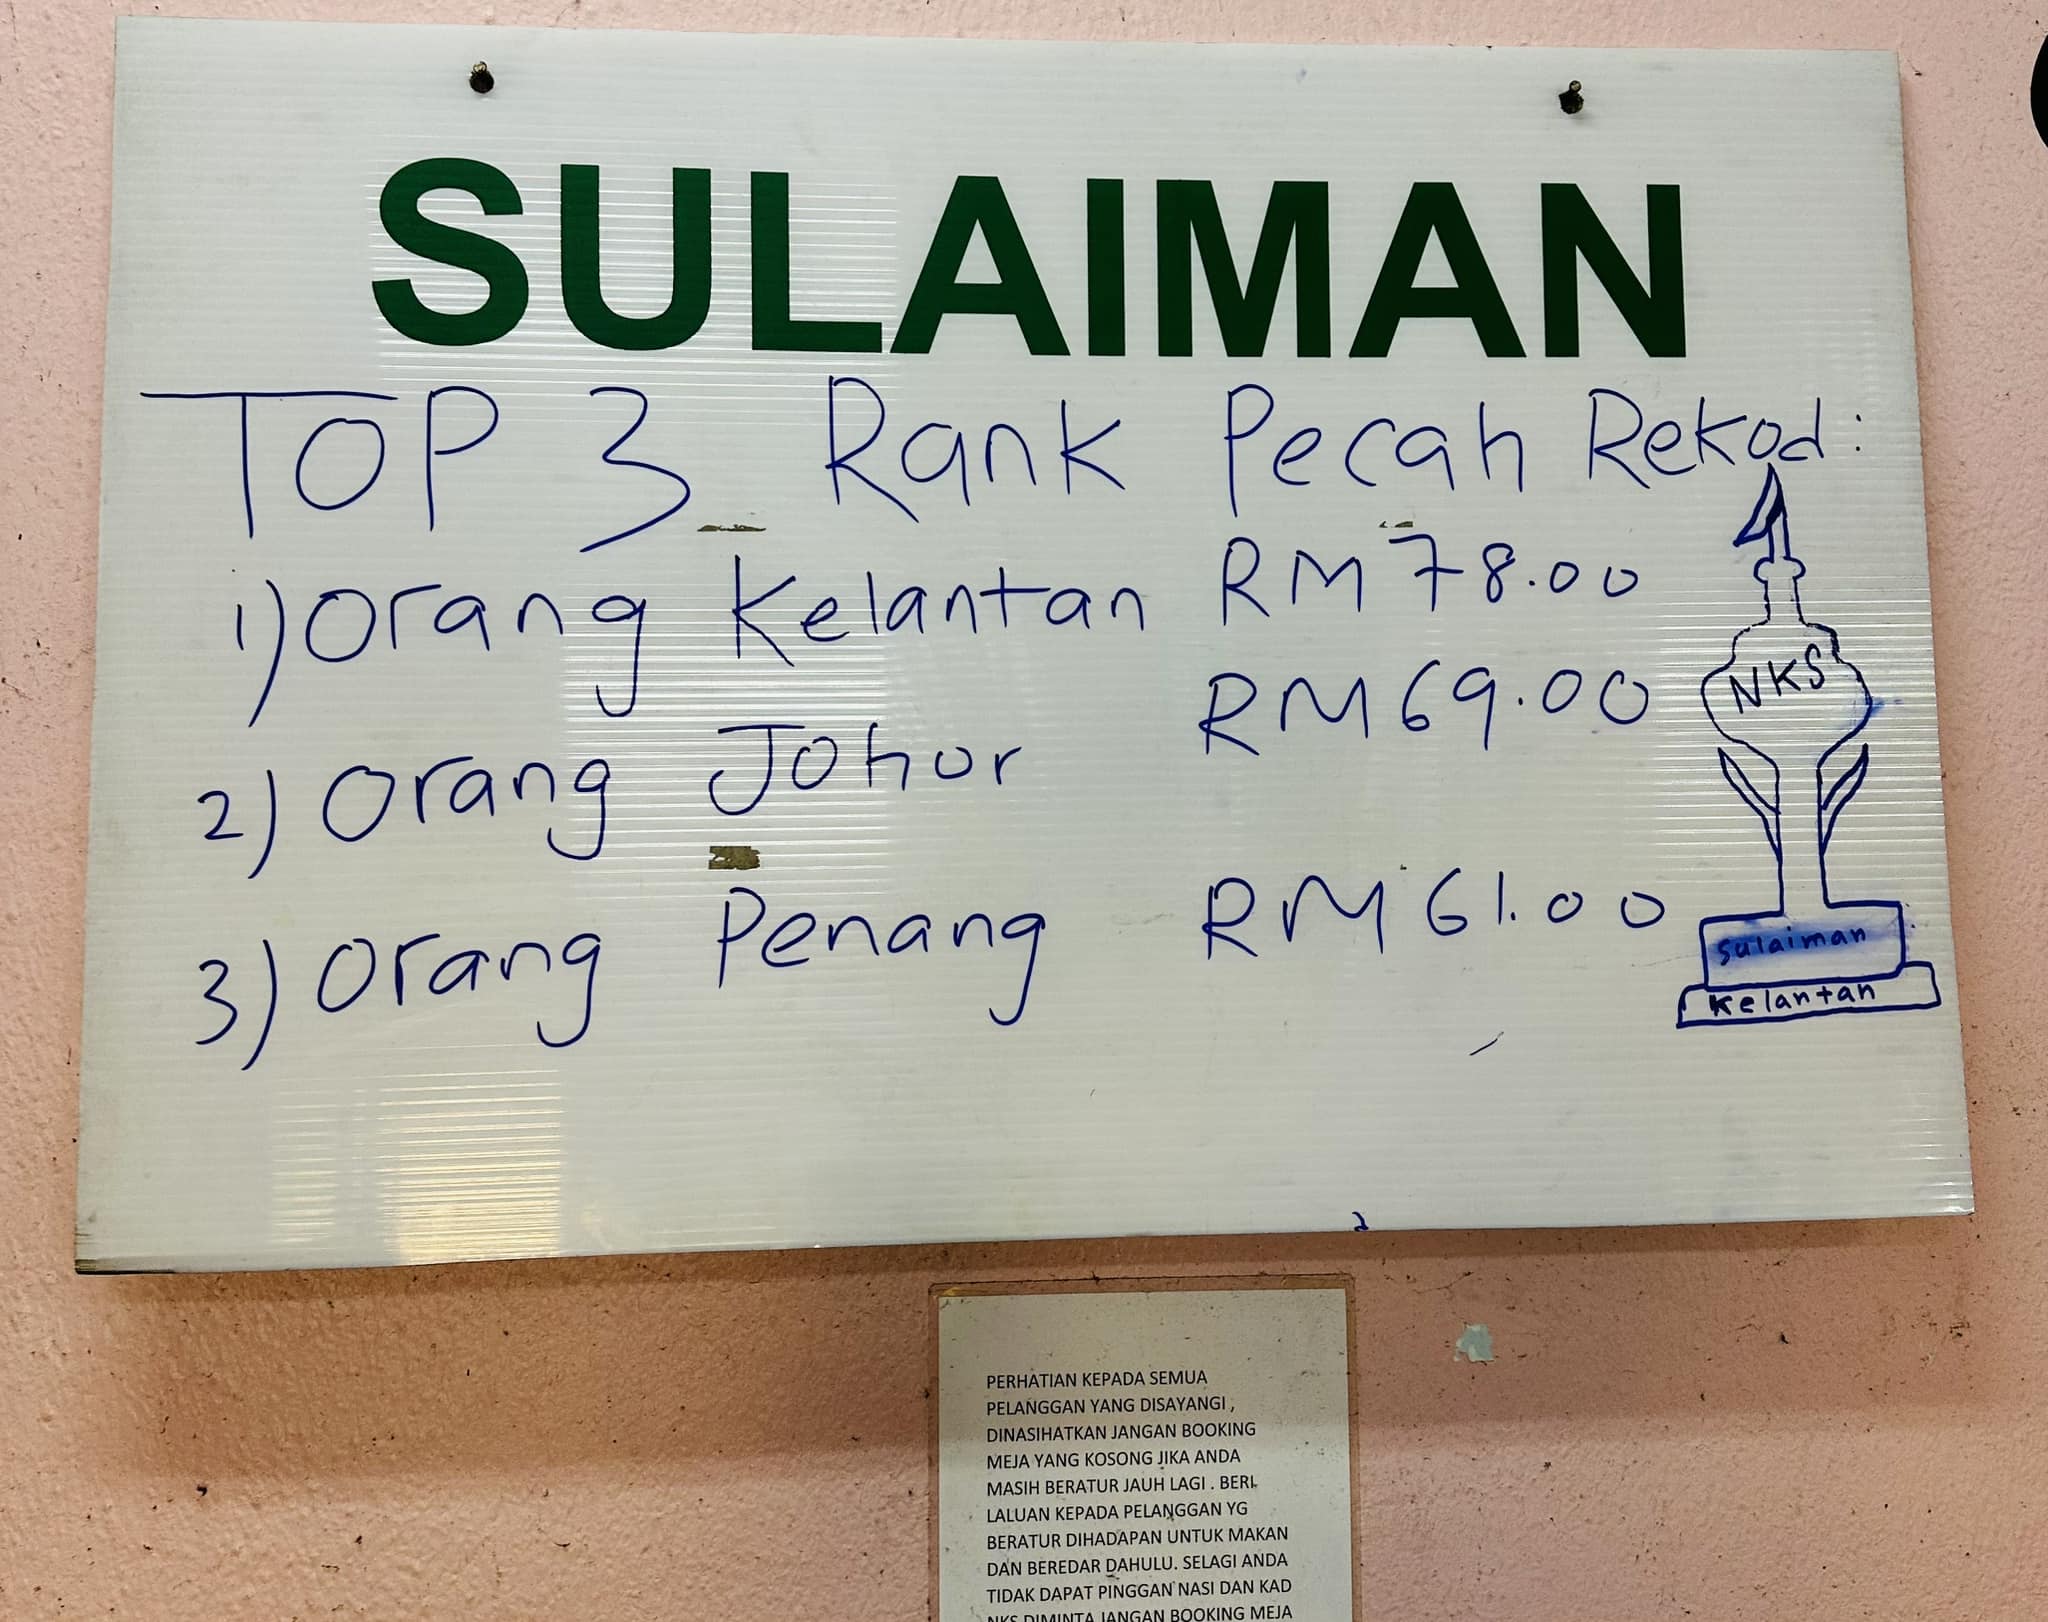 SULAIMAN
TOP 3 Rank Pecah Rekod:
1) Orang Kelantan RM 78.00
2) Orang Johor RM 69.00
3) Orang Penang RM 61.00
NKS
Sulaiman
Kelantan
PERHATIAN KEPADA SEMUA
PELANGGAN YANG DISAYANGI ,
DINASIHATKAN JANGAN BOOKING
MEJA YANG KOSONG JIKA ANDA
MASIH BERATUR JAUH LAGI . BERI
LALUAN KEPADA PELANGGAN YG
BERATUR DIHADAPAN UNTUK MAKAN
DAN BEREDAR DAHULU. SELAGI ANDA
TIDAK DAPAT PINGGAN NASI DAN KAD
NKS DIMINTA JANGAN BOOKING MEJA